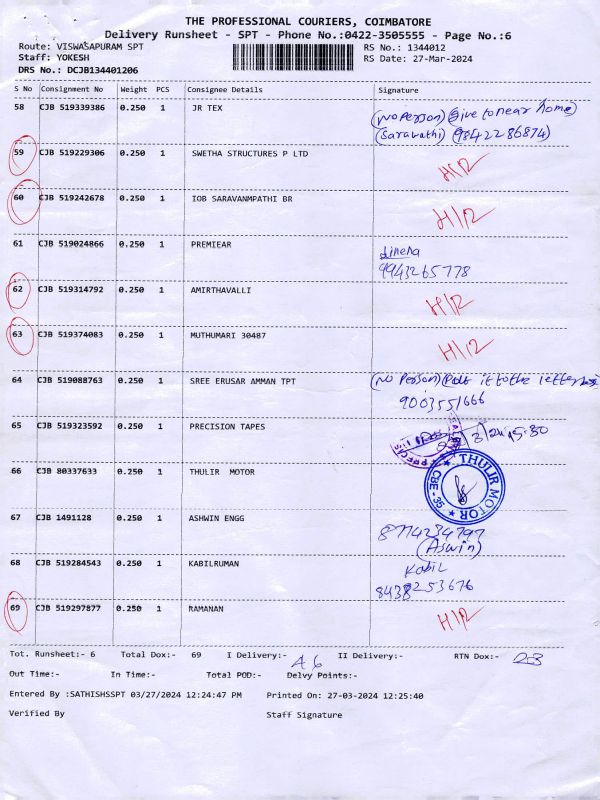 THE PROFESSIONAL COURIERS, COIMBATORE
Delivery Runsheet - SPT - Phone No.:0422-3505555 - Page No.:6
Route: VISWASAPURAM SPT RS No.: 1344012
Staff: YOKESH RS Date: 27-Mar-2024
DRS No.: DCJB134401206
S No Consignment No Weight PCS Consignee Details Signature
58 CJB 519339386 0.250 1 JR TEX (No Person) (Give to near home)
(Saravathi) (9842286874)
59 CJB 519229306 0.250 1 SWETHA STRUCTURES P LTD H/R
60 CJB 519242678 0.250 1 IOB SARAVANMPATHI BR H/R
61 CJB 519024866 0.250 1 PREMIEAR
9943265778
62 CJB 519314792 0.250 1 AMIRTHAVALLI H/R
63 CJB 519374083 0.250 1 MUTHUMARI 30487 H/R
64 CJB 519088763 0.250 1 SREE ERUSAR AMMAN TPT (No Person) (Putt it to the letter box)
9003551666
65 CJB 519323592 0.250 1 PRECISION TAPES
66 CJB 80337633 0.250 1 THULIR MOTOR THULIR MOTOR
CBE-35
67 CJB 1491128 0.250 1 ASHWIN ENGG 8774234797
(Aswin)
68 CJB 519284543 0.250 1 KABILRUMAN Kabil
8438253676
69 CJB 519297877 0.250 1 RAMANAN H/R
Tot. Runsheet:- 6 Total Dox:- 69 I Delivery:- 46 II Delivery:- RTN Dox:- 23
Out Time:- In Time:- Total POD:- Delvy Points:-
Entered By :SATHISHSSPT 03/27/2024 12:24:47 PM Printed On: 27-03-2024 12:25:40
Verified By Staff Signature